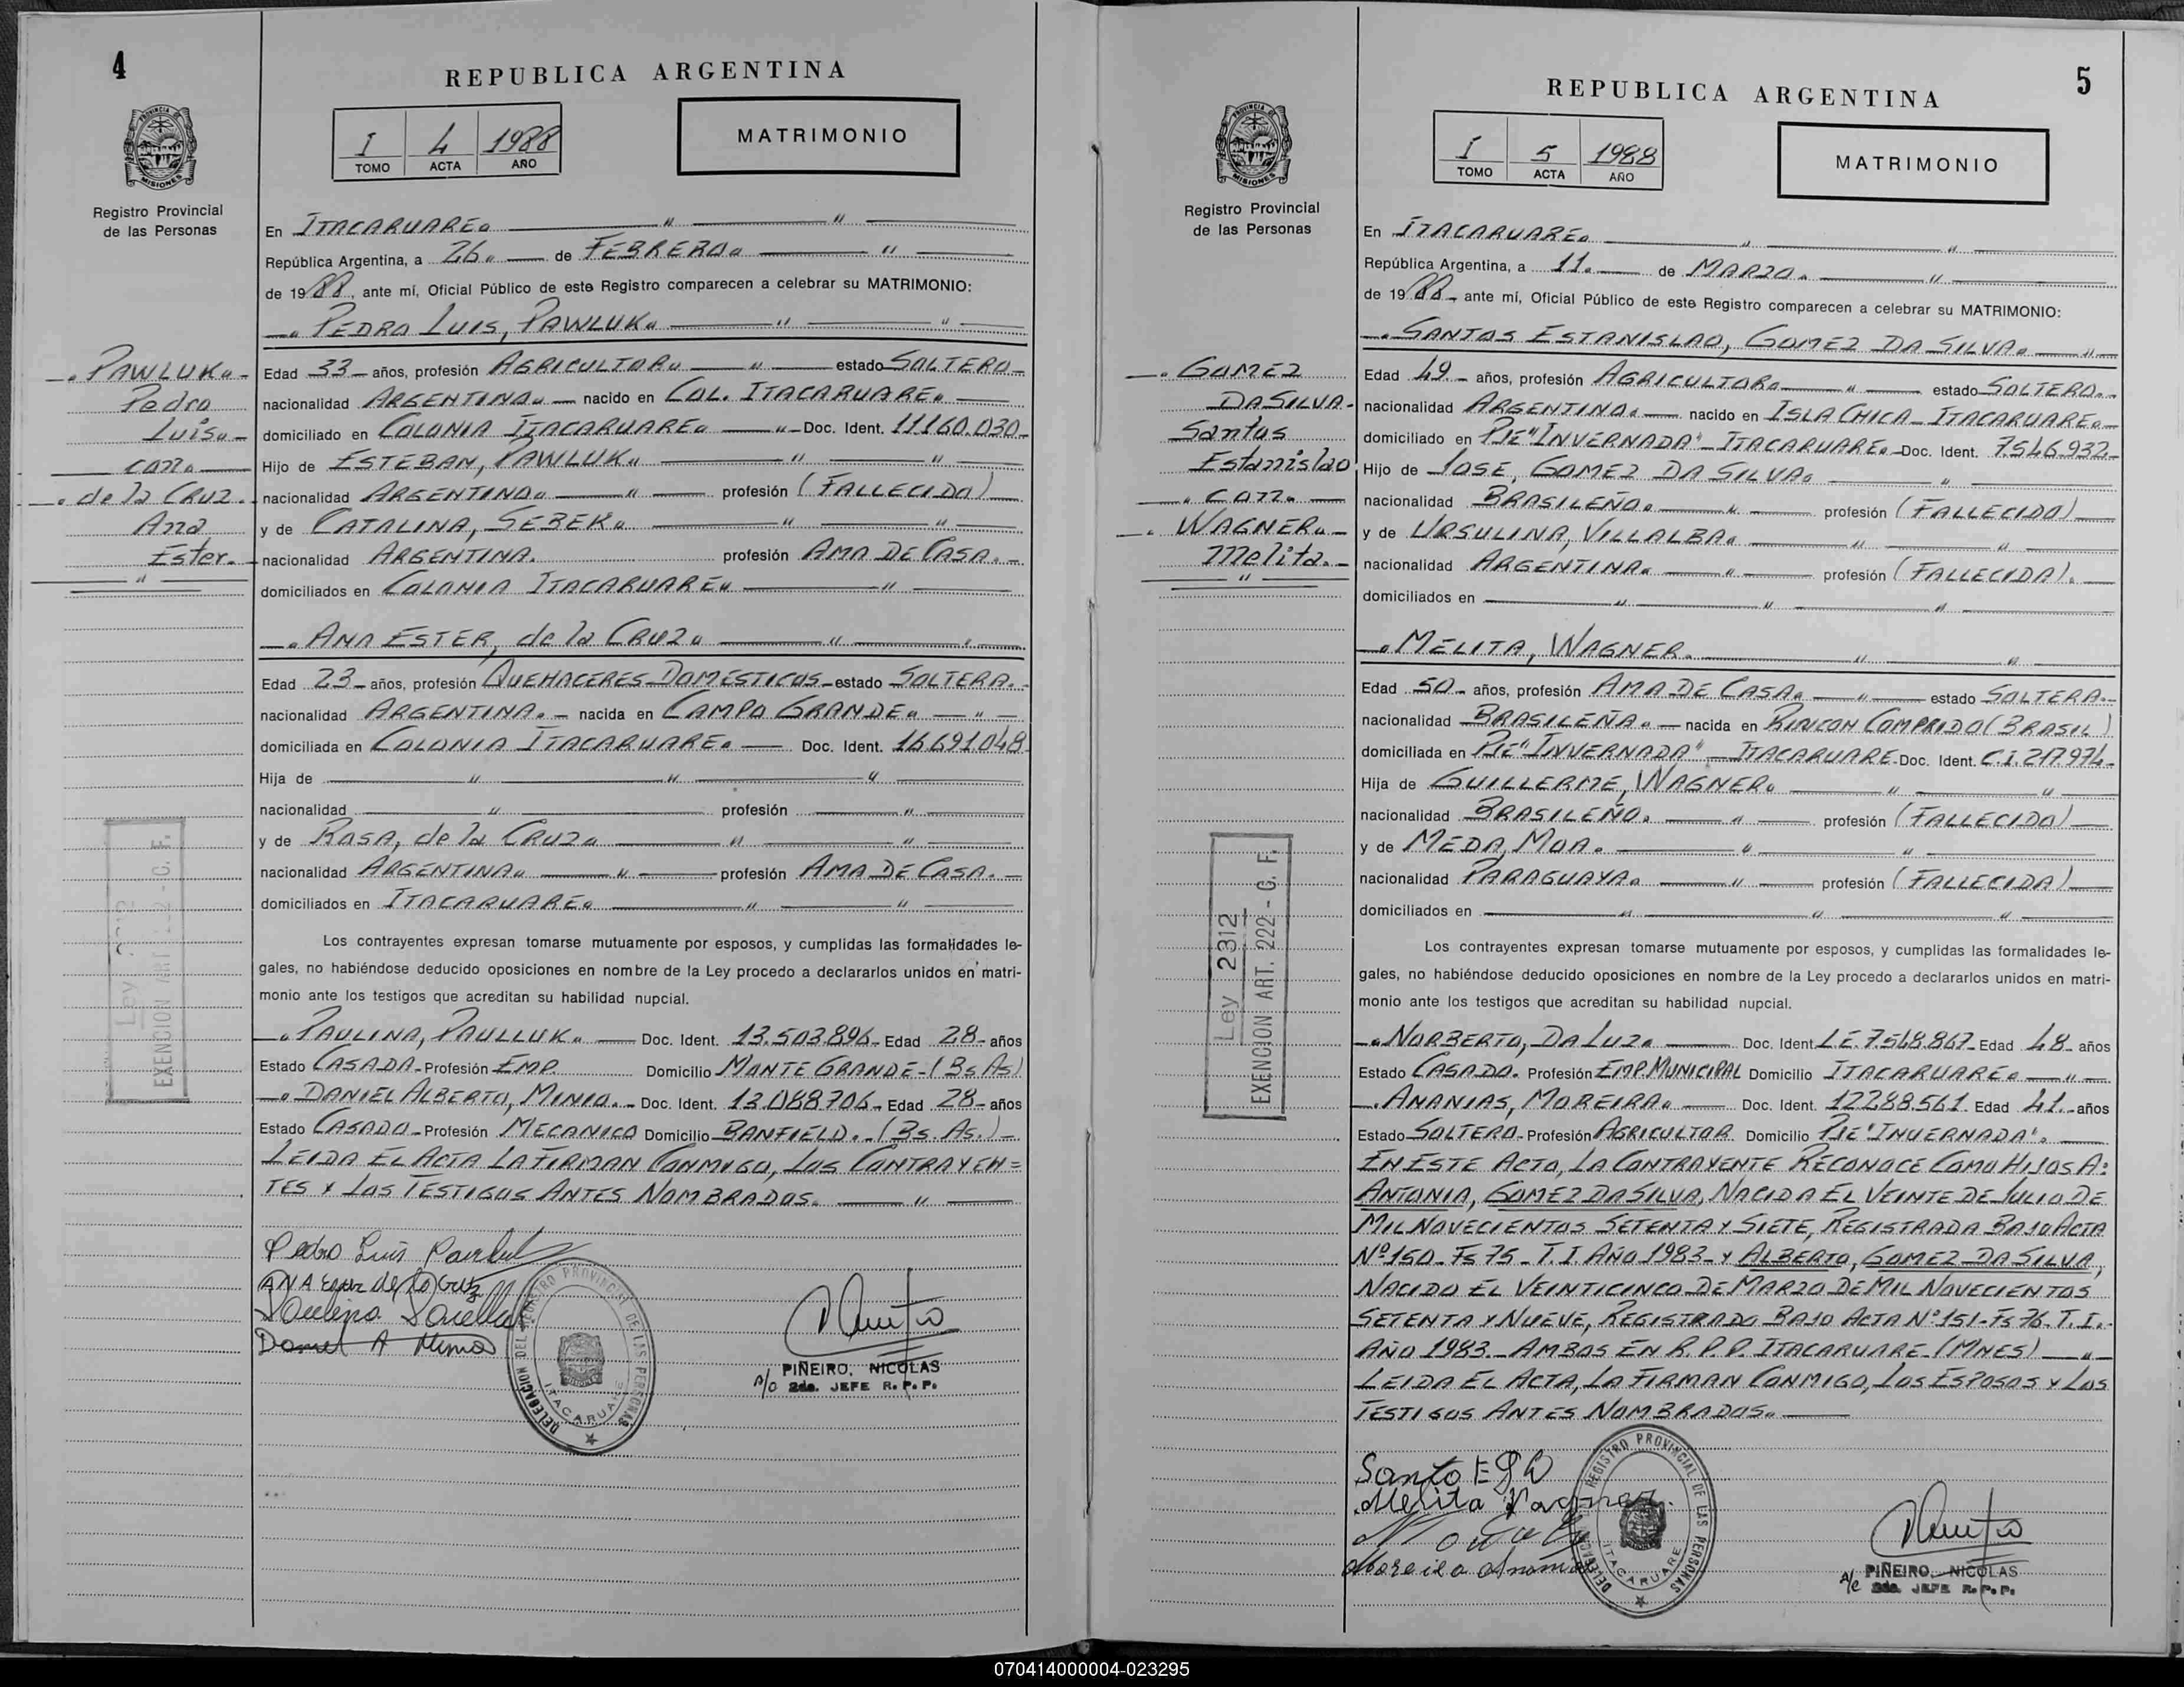 4
REPUBLICA ARGENTINA
I 4 1988
TOMO ACTA AÑO
MATRIMONIO
PROVINCIA DE MISIONES
Registro Provincial
de las Personas
En ITACARUARE.
República Argentina, a 26. de FEBRERO.
de 1988, ante mí, Oficial Público de este Registro comparecen a celebrar su MATRIMONIO:
PEDRO LUIS, PAWLUK.
PAWLUK.-
Pedro
Luis.-
con.
de la CRUZ.
Ana
Ester.-
Edad 33 años, profesión AGRICULTOR. estado SOLTERO
nacionalidad ARGENTINO. nacido en COL. ITACARUARE.
domiciliado en COLONIA ITACARUARE. Doc. Ident. 11160.030
Hijo de ESTEBAN, PAWLUK.
nacionalidad ARGENTINO. profesión (FALLECIDO)
y de CATALINA, SEBEK.
nacionalidad ARGENTINA. profesión AMA DE CASA.
domiciliados en COLONIA ITACARUARE.
ANA ESTER, de la CRUZ.
Edad 23 años, profesión QUEHACERES DOMESTICOS estado SOLTERA.
nacionalidad ARGENTINA. nacida en CAMPO GRANDE.
domiciliada en COLONIA ITACARUARE. Doc. Ident. 16691048
Hija de
nacionalidad profesión
y de ROSA, de la CRUZ.
nacionalidad ARGENTINA. profesión AMA DE CASA.
domiciliados en ITACARUARE.
Ley 2312
EXENCION ART. 222 - C. F.
Los contrayentes expresan tomarse mutuamente por esposos, y cumplidas las formalidades le-
gales, no habiéndose deducido oposiciones en nombre de la Ley procedo a declararlos unidos en matri-
monio ante los testigos que acreditan su habilidad nupcial.
PAULINA, PAULLUK. Doc. Ident. 13.503.896 Edad 28 años
Estado CASADA Profesión EMP. Domicilio MONTE GRANDE-(Bs As)
DANIEL ALBERTO, MINIO. Doc. Ident. 13.088706 Edad 28 años
Estado CASADO Profesión MECANICO Domicilio BANFIELD.-(Bs. As.)
LEIDA EL ACTA LA FIRMAN CONMIGO, LOS CONTRAYEN=
TES Y LOS TESTIGOS ANTES NOMBRADOS.
Pedro Luis Pawluk
ANA Ester de la Cruz
Daniel A Minio
DELEGACION DEL REGISTRO PROVINCIAL DE LAS PERSONAS
ITACARUARE
PIÑEIRO, NICOLAS
2do. JEFE R. P. P.
5
REPUBLICA ARGENTINA
I 5 1988
TOMO ACTA AÑO
MATRIMONIO
PROVINCIA DE MISIONES
Registro Provincial
de las Personas
En ITACARUARE.
República Argentina, a 11. de MARZO.
de 1988, ante mí, Oficial Público de este Registro comparecen a celebrar su MATRIMONIO:
SANTOS ESTANISLAO, GOMEZ DA SILVA.
GOMEZ
DA SILVA-
Santos
Estanislao
con.
WAGNER.-
Melita.-
Edad 49 años, profesión AGRICULTOR. estado SOLTERO.
nacionalidad ARGENTINO. nacido en ISLA CHICA - ITACARUARE.
domiciliado en PJE "INVERNADA" - ITACARUARE. Doc. Ident. 7.546.932
Hijo de JOSE, GOMEZ DA SILVA.
nacionalidad BRASILEÑO. profesión (FALLECIDO)
y de URSULINA, VILLALBA.
nacionalidad ARGENTINA. profesión (FALLECIDA).
domiciliados en
MELITA, WAGNER.
Edad 50 años, profesión AMA DE CASA. estado SOLTERA.
nacionalidad BRASILEÑA. nacida en RINCON COMPRIDO (BRASIL)
domiciliada en PJE "INVERNADA" - ITACARUARE Doc. Ident. C.I. 217.974
Hija de GUILLERME, WAGNER.
nacionalidad BRASILEÑO. profesión (FALLECIDO)
y de MEDA, MOA.
nacionalidad PARAGUAYA. profesión (FALLECIDA)
domiciliados en
Ley 2312
EXENCION ART. 222 - C. F.
Los contrayentes expresan tomarse mutuamente por esposos, y cumplidas las formalidades le-
gales, no habiéndose deducido oposiciones en nombre de la Ley procedo a declararlos unidos en matri-
monio ante los testigos que acreditan su habilidad nupcial.
NORBERTO, DA LUZ. Doc. Ident. L.E. 7.568.867 Edad 48 años
Estado CASADO. Profesión EMP. MUNICIPAL Domicilio ITACARUARE.
ANANIAS, MOREIRA. Doc. Ident. 12288561 Edad 41 años
Estado SOLTERO Profesión AGRICULTOR Domicilio PJE "INVERNADA".
EN ESTE ACTO, LA CONTRAYENTE RECONOCE COMO HIJOS A:
ANTONIA, GOMEZ DA SILVA, NACIDA EL VEINTE DE JULIO DE
MIL NOVECIENTOS SETENTA Y SIETE, REGISTRADA BAJO ACTA
Nº 150 - Fs 75 - T. I. AÑO 1983 - Y ALBERTO, GOMEZ DA SILVA,
NACIDO EL VEINTICINCO DE MARZO DE MIL NOVECIENTOS
SETENTA Y NUEVE, REGISTRADO BAJO ACTA Nº 151 - Fs 76 - T. I.-
AÑO 1983 - AMBOS EN R. P. P. ITACARUARE (MNES)
LEIDA EL ACTA, LA FIRMAN CONMIGO, LOS ESPOSOS Y LOS
TESTIGOS ANTES NOMBRADOS.
Melita Vagner.
DELEGACION DEL REGISTRO PROVINCIAL DE LAS PERSONAS
ITACARUARE
PIÑEIRO, NICOLAS
2do. JEFE R. P. P.
070414000004-023295